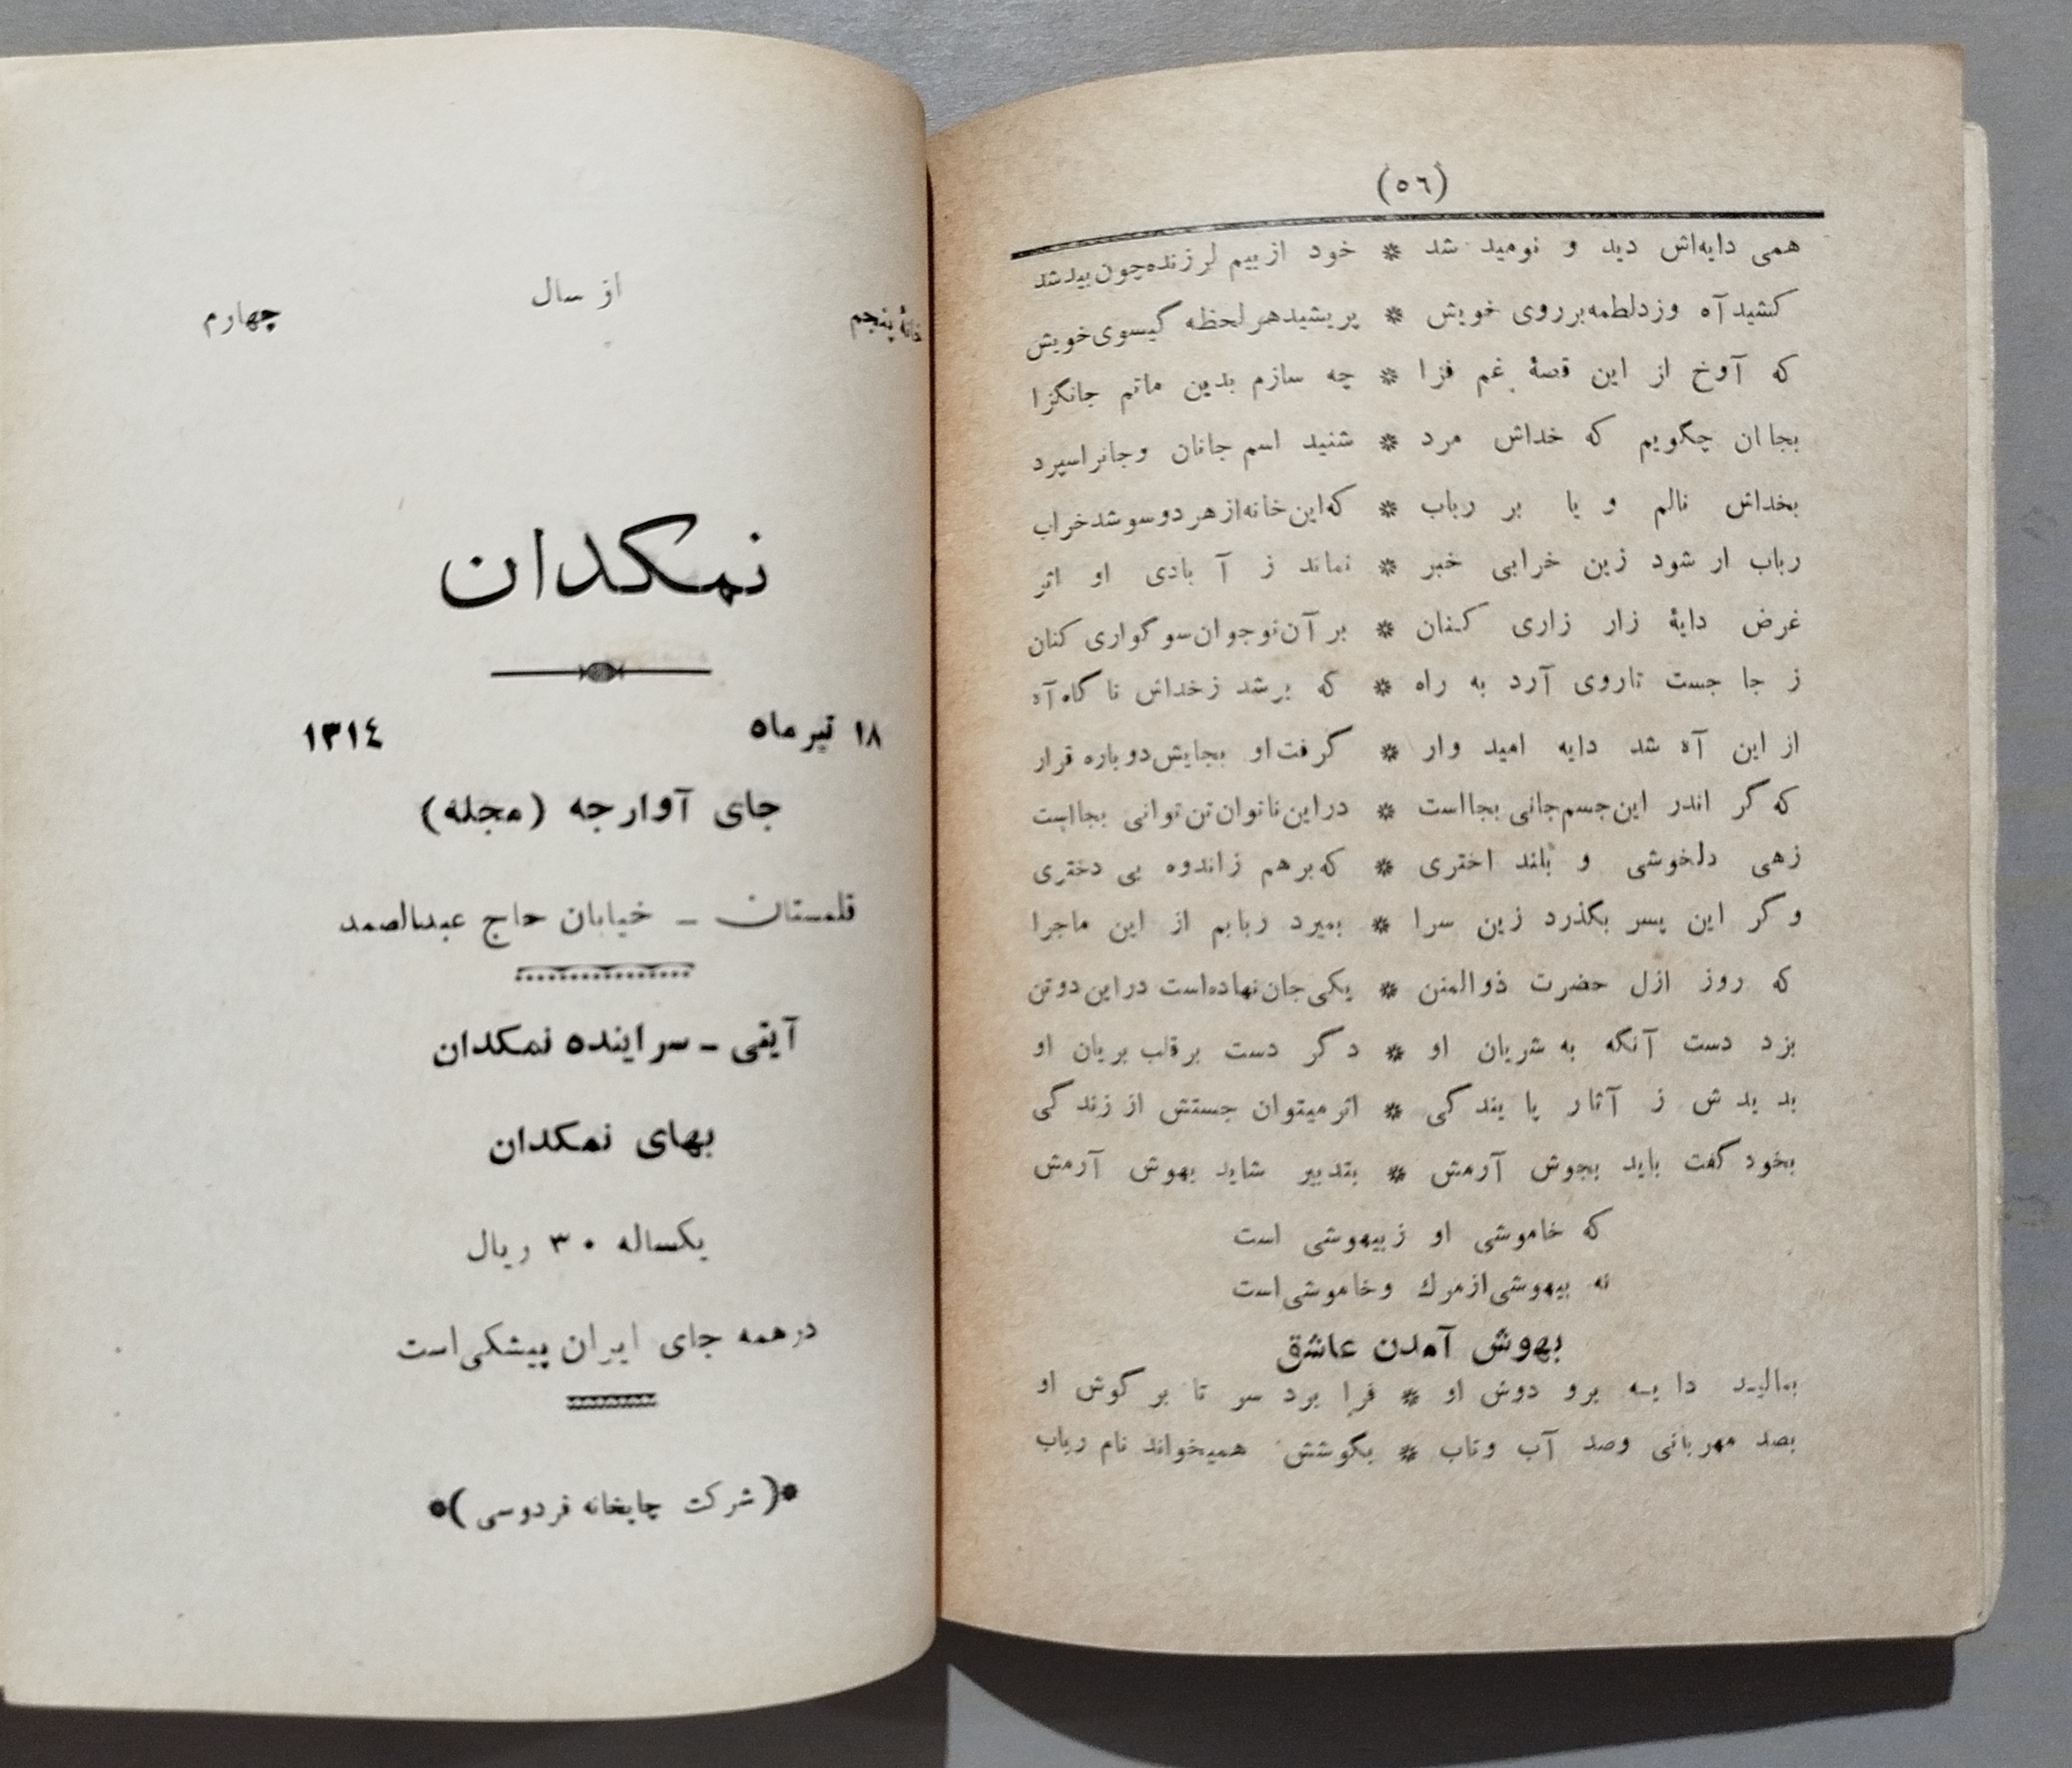 (٥٦)
همی دایه‌اش دید و نومید شد * خود از بیم لرزنده چون بید شد
کشید آه وزد لطمه بر روی خویش * پریشید هر لحظه گیسوی خویش
که آوخ از این قصهٔ غم فزا * چه سازم بدین ماتم جانگزا
بجا ان چگویم که خداش مرد * شنید اسم جانان وجانرا سپرد
بخداش نالم و یا بر رباب * که این خانه از هر دو سو شد خراب
رباب ار شود زین خرابی خبر * نماند ز آ بادی او اثر
غرض دایهٔ زار زاری کنان * بر آن نوجوان سو گواری کنان
ز جا جست تاروی آرد به راه * که برشد ز خداش نا گاه آه
از این آه شد دایه امید وار * گرفت او بجایش دوباره قرار
که گر اندر این جسم جانی بجااست * در این ناتوان تن توانی بجااست
زهی دلخوشی و بلند اختری * که برهم ز اندوه بی دختری
و گر این پسر بگذرد زین سرا * بمیرد ربابم از این ماجرا
که روز ازل حضرت ذوالمنن * یکی جان نهاده است در این دو تن
بزد دست آنگه به شریان او * د گر دست بر قلب بریان او
بد ید ش ز آثار پا یند گی * اثر میتوان جستش از زند گی
بخود گفت باید بجوش آرمش * بتدبیر شاید بهوش آرمش
که خاموشی او ز بیهوشی است
نه بیهوشی از مرك و خاموشی است
بهوش آمدن عاشق
بمالیـد دا یـه برو دوش او * فرا برد سر تا بر گوش او
بصد مهربانی وصد آب وتاب * بگوشش همیخواند نام رباب
خانهٔ پنجم از سال چهارم
نمکدان
۱۸ تیر ماه ۱۳۱٤
جای آوارجه (مجله)
قلمستان ـ خیابان حاج عبدالصمد
آیتی ـ سراینده نمکدان
بهای نمکدان
یکساله ۳۰ ریال
در همه جای ایران پیشکی است
*(شرکت چاپخانه فردوسی)*